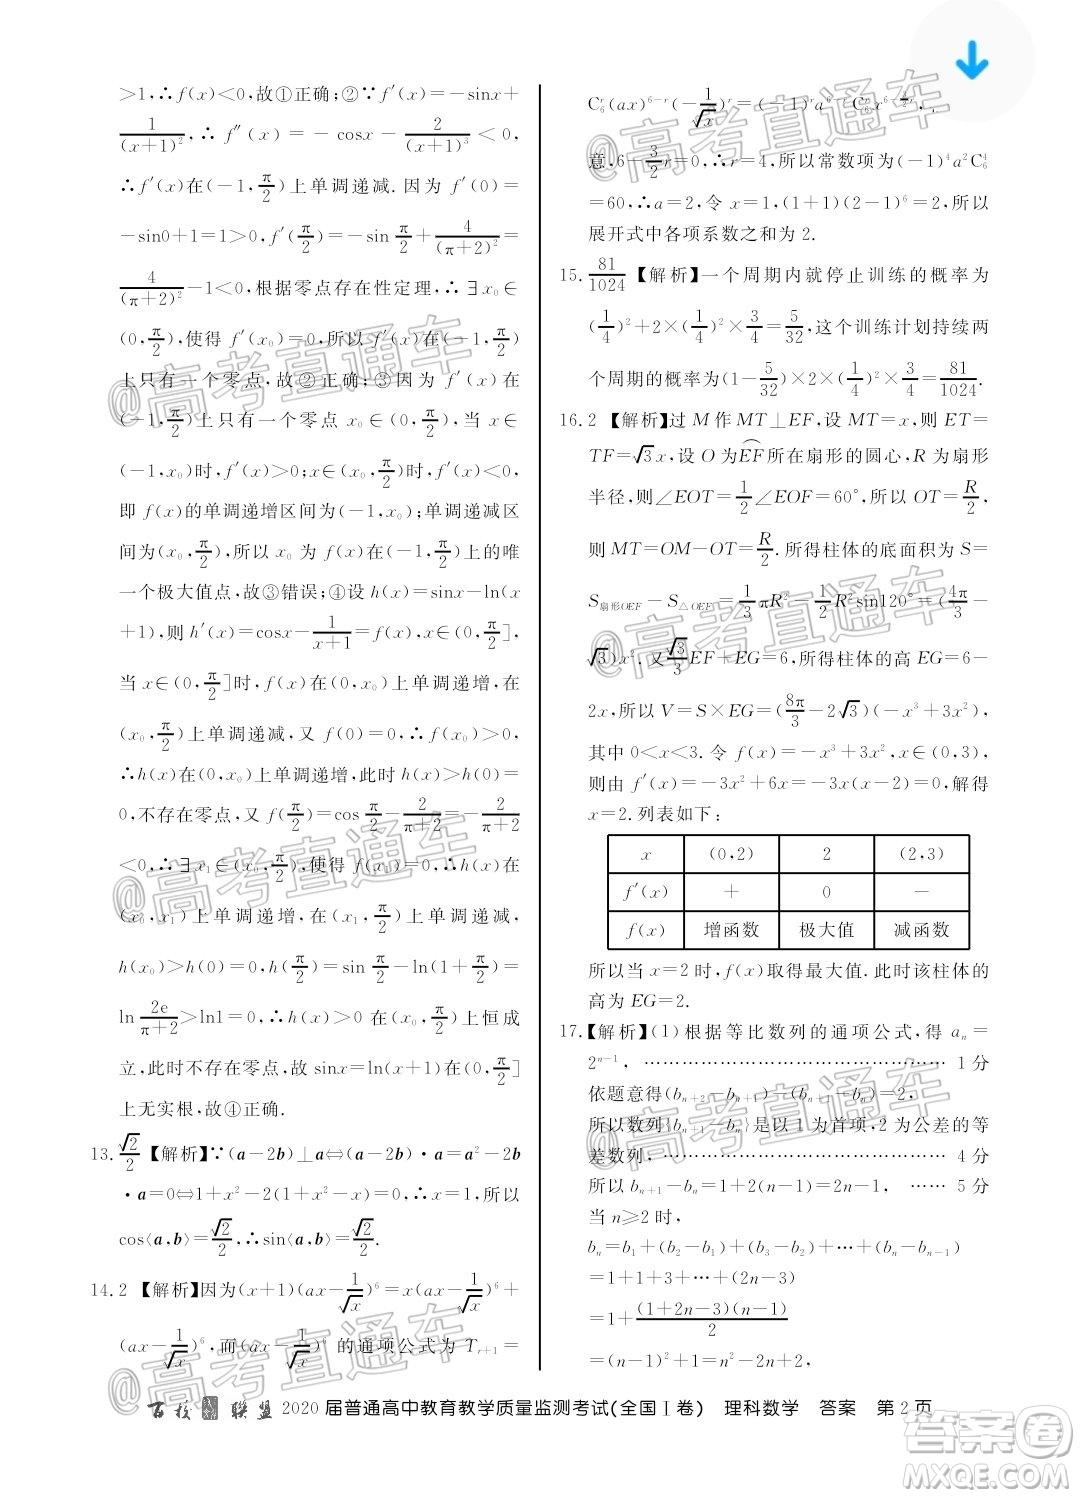 >1,∴f(x)<0,故①正确;②∵f′(x)=-sinx+
1/(x+1)²,∴f″(x)=-cosx-2/(x+1)³<0,
∴f′(x)在(-1,π/2)上单调递减.因为f′(0)=
-sin0+1=1>0,f′(π/2)=-sin π/2+4/(π+2)²=
4/(π+2)²-1<0,根据零点存在性定理,∴∃x₀∈
(0,π/2),使得f′(x₀)=0,所以f′(x)在(-1,π/2)
上只有一个零点,故②正确;③因为f′(x)在
(-1,π/2)上只有一个零点x₀∈(0,π/2),当x∈
(-1,x₀)时,f′(x)>0;x∈(x₀,π/2)时,f′(x)<0,
即f(x)的单调递增区间为(-1,x₀);单调递减区
间为(x₀,π/2),所以x₀为f(x)在(-1,π/2)上的唯
一个极大值点,故③错误;④设h(x)=sinx-ln(x
+1),则h′(x)=cosx-1/(x+1)=f(x),x∈(0,π/2],
当x∈(0,π/2]时,f(x)在(0,x₀)上单调递增,在
(x₀,π/2)上单调递减,又f(0)=0,∴f(x₀)>0,
∴h(x)在(0,x₀)上单调递增,此时h(x)>h(0)=
0,不存在零点,又f(π/2)=cos π/2-2/(π+2)=-2/(π+2)
<0,∴∃x₁∈(x₀,π/2),使得f(x₁)=0,∴h(x)在
(x₀,x₁)上单调递增,在(x₁,π/2)上单调递减,
h(x₀)>h(0)=0,h(π/2)=sin π/2-ln(1+π/2)=
ln 2e/(π+2)>ln1=0,∴h(x)>0在(x₀,π/2)上恒成
立,此时无零点,故sinx=ln(x+1)在(0,π/2]
上无实根,故④正确.
13.√2/2 【解析】∵(a-2b)⊥a⇔(a-2b)·a=a²-2b
·a=0⇔1+x²-2(1+x²-x)=0,∴x=1,所以
cos⟨a,b⟩=√2/2,∴sin⟨a,b⟩=√2/2.
14.2 【解析】因为(x+1)(ax-1/√x)⁶=x(ax-1/√x)⁶+
(ax-1/√x)⁶,而(ax-1/√x)⁶的通项公式为Tᵣ₊₁=
C₆ʳ(ax)⁶⁻ʳ(-1/√x)ʳ=(-1)ʳa⁶⁻ʳC₆ʳx^(6-3/2 r),
意,6-3/2 r=0,∴r=4,所以常数项为(-1)⁴a²C₆⁴
=60,∴a=2,令x=1,(1+1)(2-1)⁶=2,所以
展开式中各项系数之和为2.
15.81/1024 【解析】一个周期内就停止训练的概率为
(1/4)²+2×(1/4)²×3/4=5/32,这个训练计划持续两
个周期的概率为(1-5/32)×2×(1/4)²×3/4=81/1024.
16.2 【解析】过M作MT⊥EF,设MT=x,则ET=
TF=√3x,设O为EF⌢所在扇形的圆心,R为扇形
半径,则∠EOT=1/2∠EOF=60°,所以OT=R/2,
则MT=OM-OT=R/2.所得柱体的底面积为S=
S扇形OEF-S△OEF=1/3πR²-1/2R²sin120°=(4π/3-
√3)x².又√3/3EF+EG=6,所得柱体的高EG=6-
2x,所以V=S×EG=(8π/3-2√3)(-x³+3x²),
其中0<x<3.令f(x)=-x³+3x²,x∈(0,3),
则由f′(x)=-3x²+6x=-3x(x-2)=0,解得
x=2.列表如下:
x (0,2) 2 (2,3)
f′(x) + 0 -
f(x) 增函数 极大值 减函数
所以当x=2时,f(x)取得最大值.此时该柱体的
高为EG=2.
17.【解析】(1)根据等比数列的通项公式,得aₙ=
2ⁿ⁻¹,……………………………………1分
依题意得(bₙ₊₂-bₙ₊₁)-(bₙ₊₁-bₙ)=2,
所以数列{bₙ₊₁-bₙ}是以1为首项,2为公差的等
差数列,…………………………………4分
所以bₙ₊₁-bₙ=1+2(n-1)=2n-1,……5分
当n≥2时,
bₙ=b₁+(b₂-b₁)+(b₃-b₂)+…+(bₙ-bₙ₋₁)
=1+1+3+…+(2n-3)
=1+(1+2n-3)(n-1)/2
=(n-1)²+1=n²-2n+2,
百校联盟2020届普通高中教育教学质量监测考试(全国Ⅰ卷) 理科数学 答案 第2页
@高考直通车
答案圈
MXQE.COM